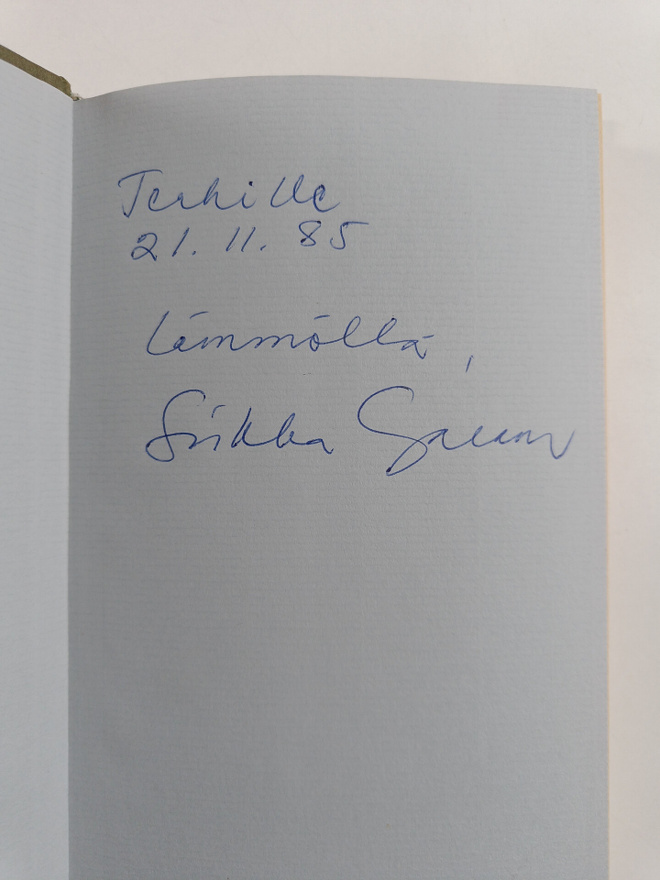 Terhille
21.11.85
Lämmöllä,
Sirkka